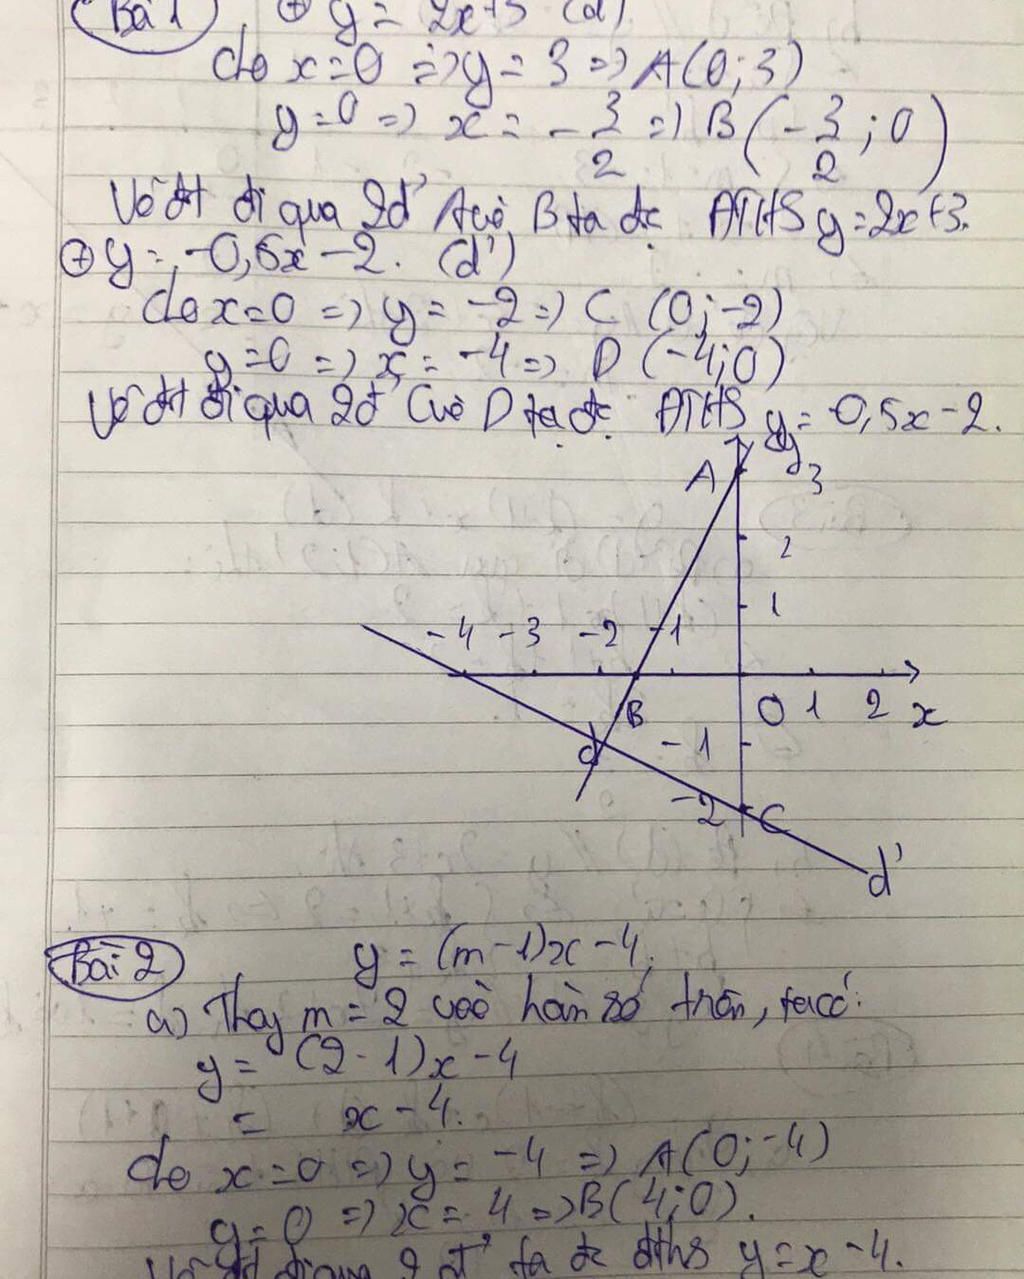 Bài 1 ⊕ y = 2x+3 (d)
Cho x=0 => y = 3 => A(0;3)
y=0 => x = -3/2 => B(-3/2;0)
Vẽ đt đi qua 2đ' A và B ta đc ĐTHS y=2x+3.
⊕ y = -0,5x -2. (d')
Cho x=0 => y = -2 => C (0;-2)
y=0 => x = -4 => D (-4;0)
Vẽ đt đi qua 2đ' C và D ta đc ĐTHS y= -0,5x -2.
y
A 3
2
1
-4 -3 -2 -1
B 0 1 2 x
d -1
-2 C
d'
Bài 2 y = (m-1)x -4.
a) Thay m = 2 vào hàm số trên, ta có:
y = (2-1)x -4
= x -4.
Cho x=0 => y = -4 => A(0;-4)
y=0 => x = 4 => B(4;0).
Vẽ đt đi qua 2 đ' ta đc đths y=x -4.